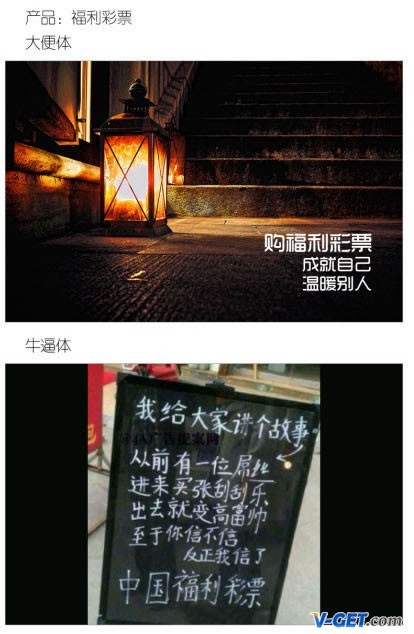 产品：福利彩票
大便体
购福利彩票
成就自己
温暖别人
牛逼体
我给大家讲个故事。
@4A广告提案网
从前有一位屌丝
进来买张刮刮乐
出去就变高富帅
至于你信不信
反正我信了
中国福利彩票
V-GET.com